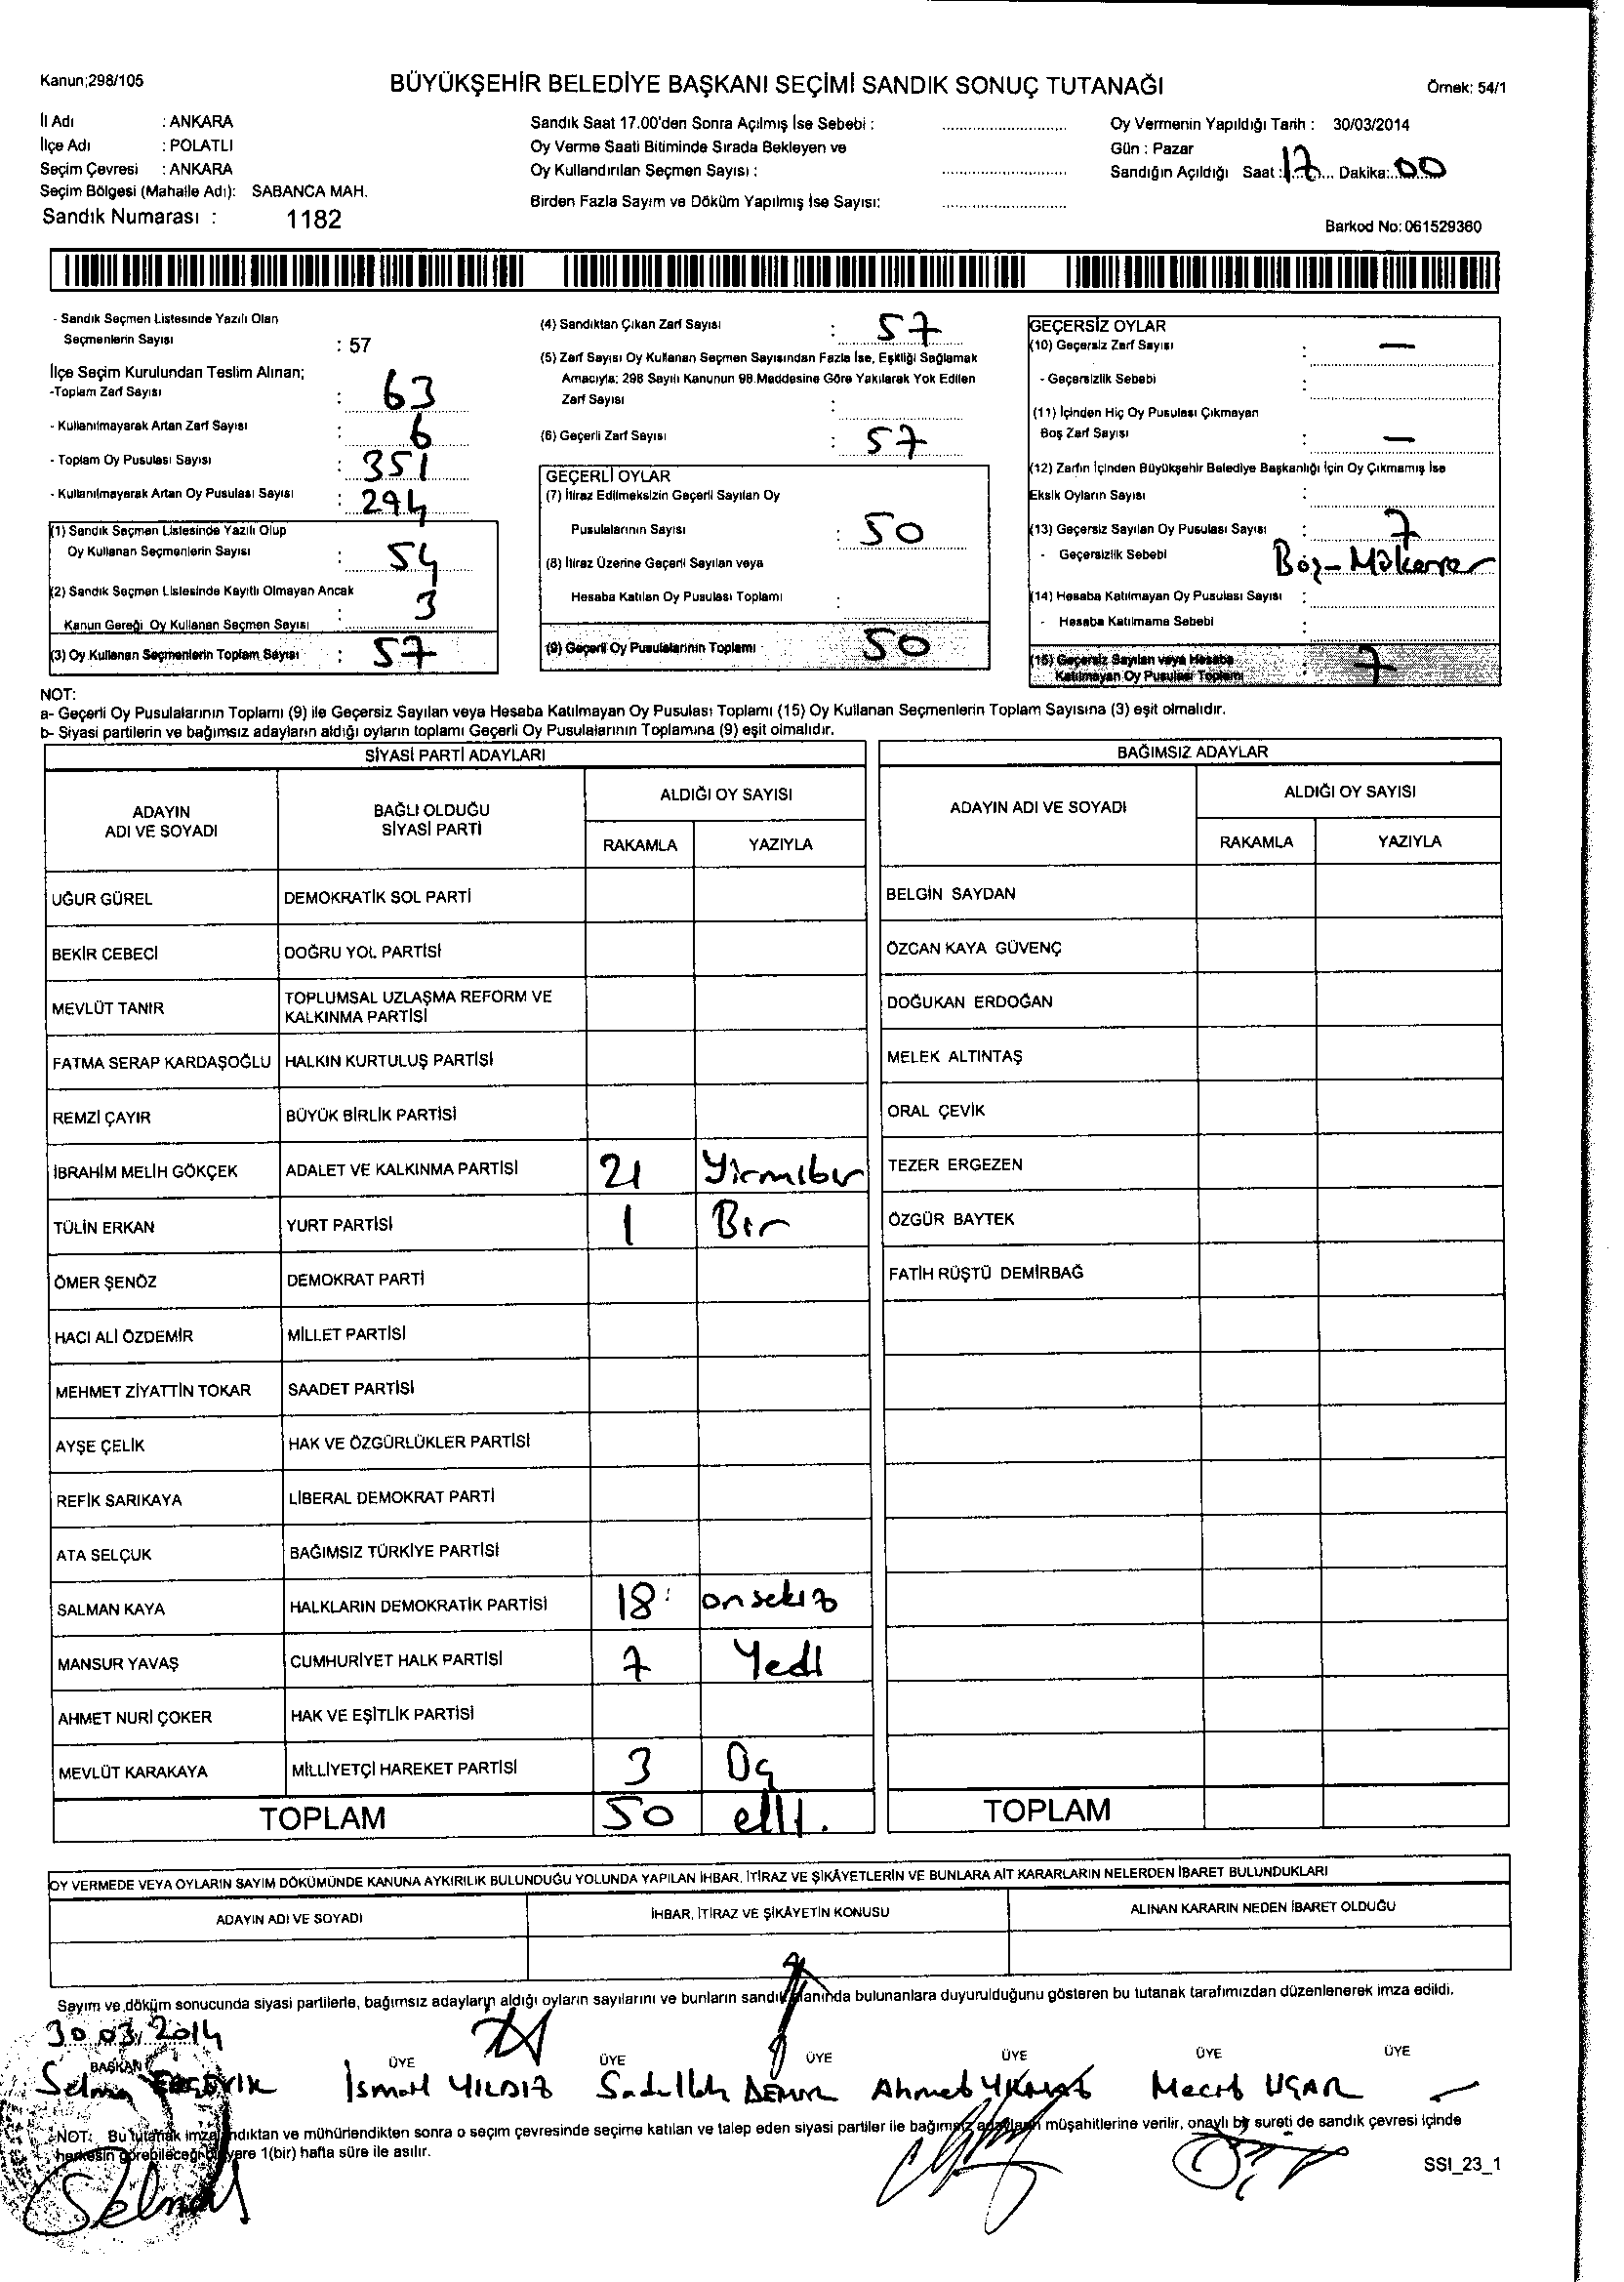 Kanun;298/105
BÜYÜKŞEHİR BELEDİYE BAŞKANI SEÇİMİ SANDIK SONUÇ TUTANAĞI
Örnek: 54/1
İl Adı : ANKARA
İlçe Adı : POLATLI
Seçim Çevresi : ANKARA
Seçim Bölgesi (Mahalle Adı): SABANCA MAH.
Sandık Numarası : 1182
Sandık Saat 17.00'den Sonra Açılmış İse Sebebi :
Oy Verme Saati Bitiminde Sırada Bekleyen ve
Oy Kullandırılan Seçmen Sayısı :
Birden Fazla Sayım ve Döküm Yapılmış İse Sayısı:
Oy Vermenin Yapıldığı Tarih : 30/03/2014
Gün : Pazar
Sandığın Açıldığı Saat : 17 Dakika: 00
Barkod No: 061529360
- Sandık Seçmen Listesinde Yazılı Olan
Seçmenlerin Sayısı : 57
İlçe Seçim Kurulundan Teslim Alınan;
-Toplam Zarf Sayısı : 63
- Kullanılmayarak Artan Zarf Sayısı : 6
- Toplam Oy Pusulası Sayısı : 351
- Kullanılmayarak Artan Oy Pusulası Sayısı : 294
(1) Sandık Seçmen Listesinde Yazılı Olup
Oy Kullanan Seçmenlerin Sayısı : 54
(2) Sandık Seçmen Listesinde Kayıtlı Olmayan Ancak
Kanun Gereği Oy Kullanan Seçmen Sayısı : 3
(3) Oy Kullanan Seçmenlerin Toplam Sayısı : 57
(4) Sandıktan Çıkan Zarf Sayısı : 57
(5) Zarf Sayısı Oy Kullanan Seçmen Sayısından Fazla İse, Eşitliği Sağlamak
Amacıyla; 298 Sayılı Kanunun 98.Maddesine Göre Yakılarak Yok Edilen
Zarf Sayısı :
(6) Geçerli Zarf Sayısı : 57
GEÇERLİ OYLAR
(7) İtiraz Edilmeksizin Geçerli Sayılan Oy
Pusulalarının Sayısı : 50
(8) İtiraz Üzerine Geçerli Sayılan veya
Hesaba Katılan Oy Pusulası Toplamı :
(9) Geçerli Oy Pusulalarının Toplamı 50
GEÇERSİZ OYLAR
(10) Geçersiz Zarf Sayısı : —
- Geçersizlik Sebebi :
(11) İçinden Hiç Oy Pusulası Çıkmayan
Boş Zarf Sayısı : —
(12) Zarfın İçinden Büyükşehir Belediye Başkanlığı İçin Oy Çıkmamış İse
Eksik Oyların Sayısı :
(13) Geçersiz Sayılan Oy Pusulası Sayısı : 7
- Geçersizlik Sebebi Boş-Mükerrer
(14) Hesaba Katılmayan Oy Pusulası Sayısı :
- Hesaba Katılmama Sebebi :
(15) Geçersiz Sayılan veya Hesaba
Katılmayan Oy Pusulası Toplamı : 7
NOT:
a- Geçerli Oy Pusulalarının Toplamı (9) ile Geçersiz Sayılan veya Hesaba Katılmayan Oy Pusulası Toplamı (15) Oy Kullanan Seçmenlerin Toplam Sayısına (3) eşit olmalıdır.
b- Siyasi partilerin ve bağımsız adayların aldığı oyların toplamı Geçerli Oy Pusulalarının Toplamına (9) eşit olmalıdır.
SİYASİ PARTİ ADAYLARI
ADAYIN ADI VE SOYADI
BAĞLI OLDUĞU SİYASİ PARTİ
ALDIĞI OY SAYISI
RAKAMLA YAZIYLA
UĞUR GÜREL DEMOKRATİK SOL PARTİ
BEKİR CEBECİ DOĞRU YOL PARTİSİ
MEVLÜT TANIR TOPLUMSAL UZLAŞMA REFORM VE
KALKINMA PARTİSİ
FATMA SERAP KARDAŞOĞLU HALKIN KURTULUŞ PARTİSİ
REMZİ ÇAYIR BÜYÜK BİRLİK PARTİSİ
İBRAHİM MELİH GÖKÇEK ADALET VE KALKINMA PARTİSİ 21 Yirmıbır
TÜLİN ERKAN YURT PARTİSİ 1 Bır
ÖMER ŞENÖZ DEMOKRAT PARTİ
HACI ALİ ÖZDEMİR MİLLET PARTİSİ
MEHMET ZİYATTİN TOKAR SAADET PARTİSİ
AYŞE ÇELİK HAK VE ÖZGÜRLÜKLER PARTİSİ
REFİK SARIKAYA LİBERAL DEMOKRAT PARTİ
ATA SELÇUK BAĞIMSIZ TÜRKİYE PARTİSİ
SALMAN KAYA HALKLARIN DEMOKRATİK PARTİSİ 18 onsekız
MANSUR YAVAŞ CUMHURİYET HALK PARTİSİ 7 Yedı
AHMET NURİ ÇOKER HAK VE EŞİTLİK PARTİSİ
MEVLÜT KARAKAYA MİLLİYETÇİ HAREKET PARTİSİ 3 Üç
TOPLAM 50 ellı.
BAĞIMSIZ ADAYLAR
ADAYIN ADI VE SOYADI
ALDIĞI OY SAYISI
RAKAMLA YAZIYLA
BELGİN SAYDAN
ÖZCAN KAYA GÜVENÇ
DOĞUKAN ERDOĞAN
MELEK ALTINTAŞ
ORAL ÇEVİK
TEZER ERGEZEN
ÖZGÜR BAYTEK
FATİH RÜŞTÜ DEMİRBAĞ
TOPLAM
OY VERMEDE VEYA OYLARIN SAYIM DÖKÜMÜNDE KANUNA AYKIRILIK BULUNDUĞU YOLUNDA YAPILAN İHBAR, İTİRAZ VE ŞİKÂYETLERİN VE BUNLARA AİT KARARLARIN NELERDEN İBARET BULUNDUKLARI
ADAYIN ADI VE SOYADI İHBAR, İTİRAZ VE ŞİKÂYETİN KONUSU ALINAN KARARIN NEDEN İBARET OLDUĞU
Sayım ve döküm sonucunda siyasi partilerle, bağımsız adayların aldığı oyların sayılarını ve bunların sandık alanında bulunanlara duyurulduğunu gösteren bu tutanak tarafımızdan düzenlenerek imza edildi.
30.03.2014
BAŞKAN ÜYE ÜYE ÜYE ÜYE ÜYE ÜYE
Selma İsmail YILDIZ Sadullah DEMİR Ahmet Mecit UÇAR —
NOT: Bu tutanak imzalandıktan ve mühürlendikten sonra o seçim çevresinde seçime katılan ve talep eden siyasi partiler ile bağımsız adayların müşahitlerine verilir, onaylı bir sureti de sandık çevresi içinde
herkesin görebileceği bir yere 1(bir) hafta süre ile asılır.
SSI_23_1